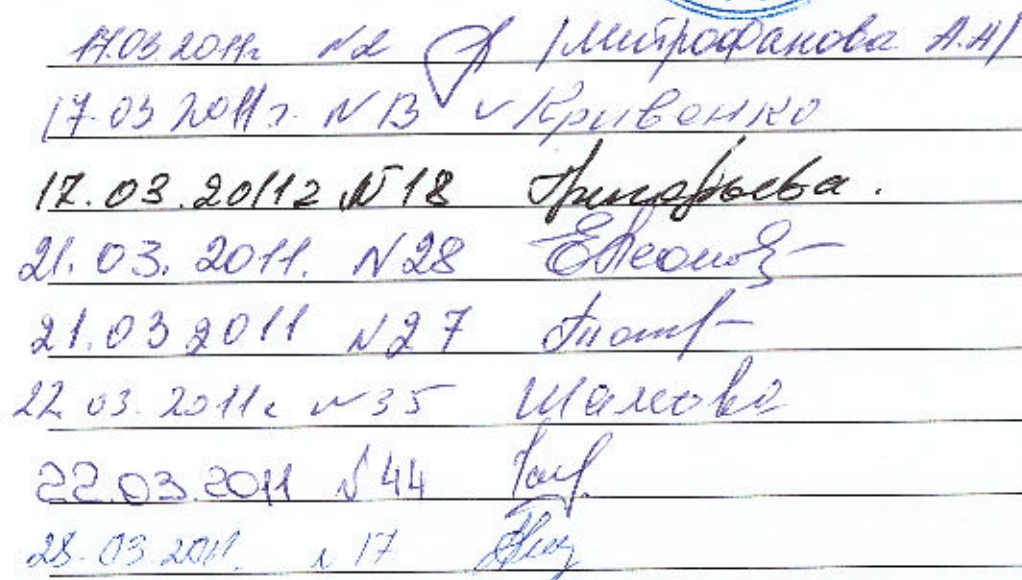 17.03.2011г. №2 /Митрофанова А.А/
17.03 2011г. № 13 Кривенко
17.03.2011г №18 Григорьева.
21.03.2011. №28
21.03 2011 №27
22.03.2011г №35 Шамова
22.03.2011 №44
28.03.2011. №17